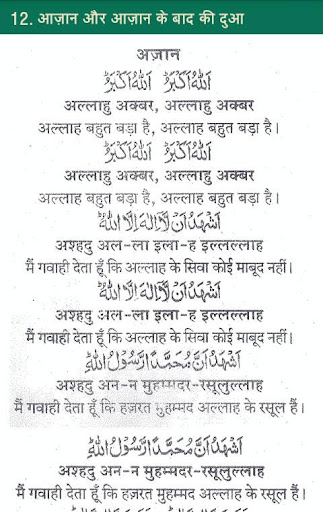 12. आज़ान और आज़ान के बाद की दुआ
अज़ान
اَللّٰهُ اَكْبَرُ اَللّٰهُ اَكْبَرُ
अल्लाहु अक्बर, अल्लाहु अक्बर
अल्लाह बहुत बड़ा है, अल्लाह बहुत बड़ा है।
اَللّٰهُ اَكْبَرُ اَللّٰهُ اَكْبَرُ
अल्लाहु अक्बर, अल्लाहु अक्बर
अल्लाह बहुत बड़ा है, अल्लाह बहुत बड़ा है।
اَشْهَدُ اَنْ لَّا اِلٰهَ اِلَّا اللّٰهُ
अश्हदु अल-ला इला-ह इल्लल्लाह
मैं गवाही देता हूँ कि अल्लाह के सिवा कोई माबूद नहीं।
اَشْهَدُ اَنْ لَّا اِلٰهَ اِلَّا اللّٰهُ
अश्हदु अल-ला इला-ह इल्लल्लाह
मैं गवाही देता हूँ कि अल्लाह के सिवा कोई माबूद नहीं।
اَشْهَدُ اَنَّ مُحَمَّدًا رَّسُوْلُ اللّٰهِ
अश्हदु अन-न मुहम्मदर-रसूलुल्लाह
मैं गवाही देता हूँ कि हज़रत मुहम्मद अल्लाह के रसूल हैं।
اَشْهَدُ اَنَّ مُحَمَّدًا رَّسُوْلُ اللّٰهِ
अश्हदु अन-न मुहम्मदर-रसूलुल्लाह
मैं गवाही देता हूँ कि हज़रत मुहम्मद अल्लाह के रसूल हैं।